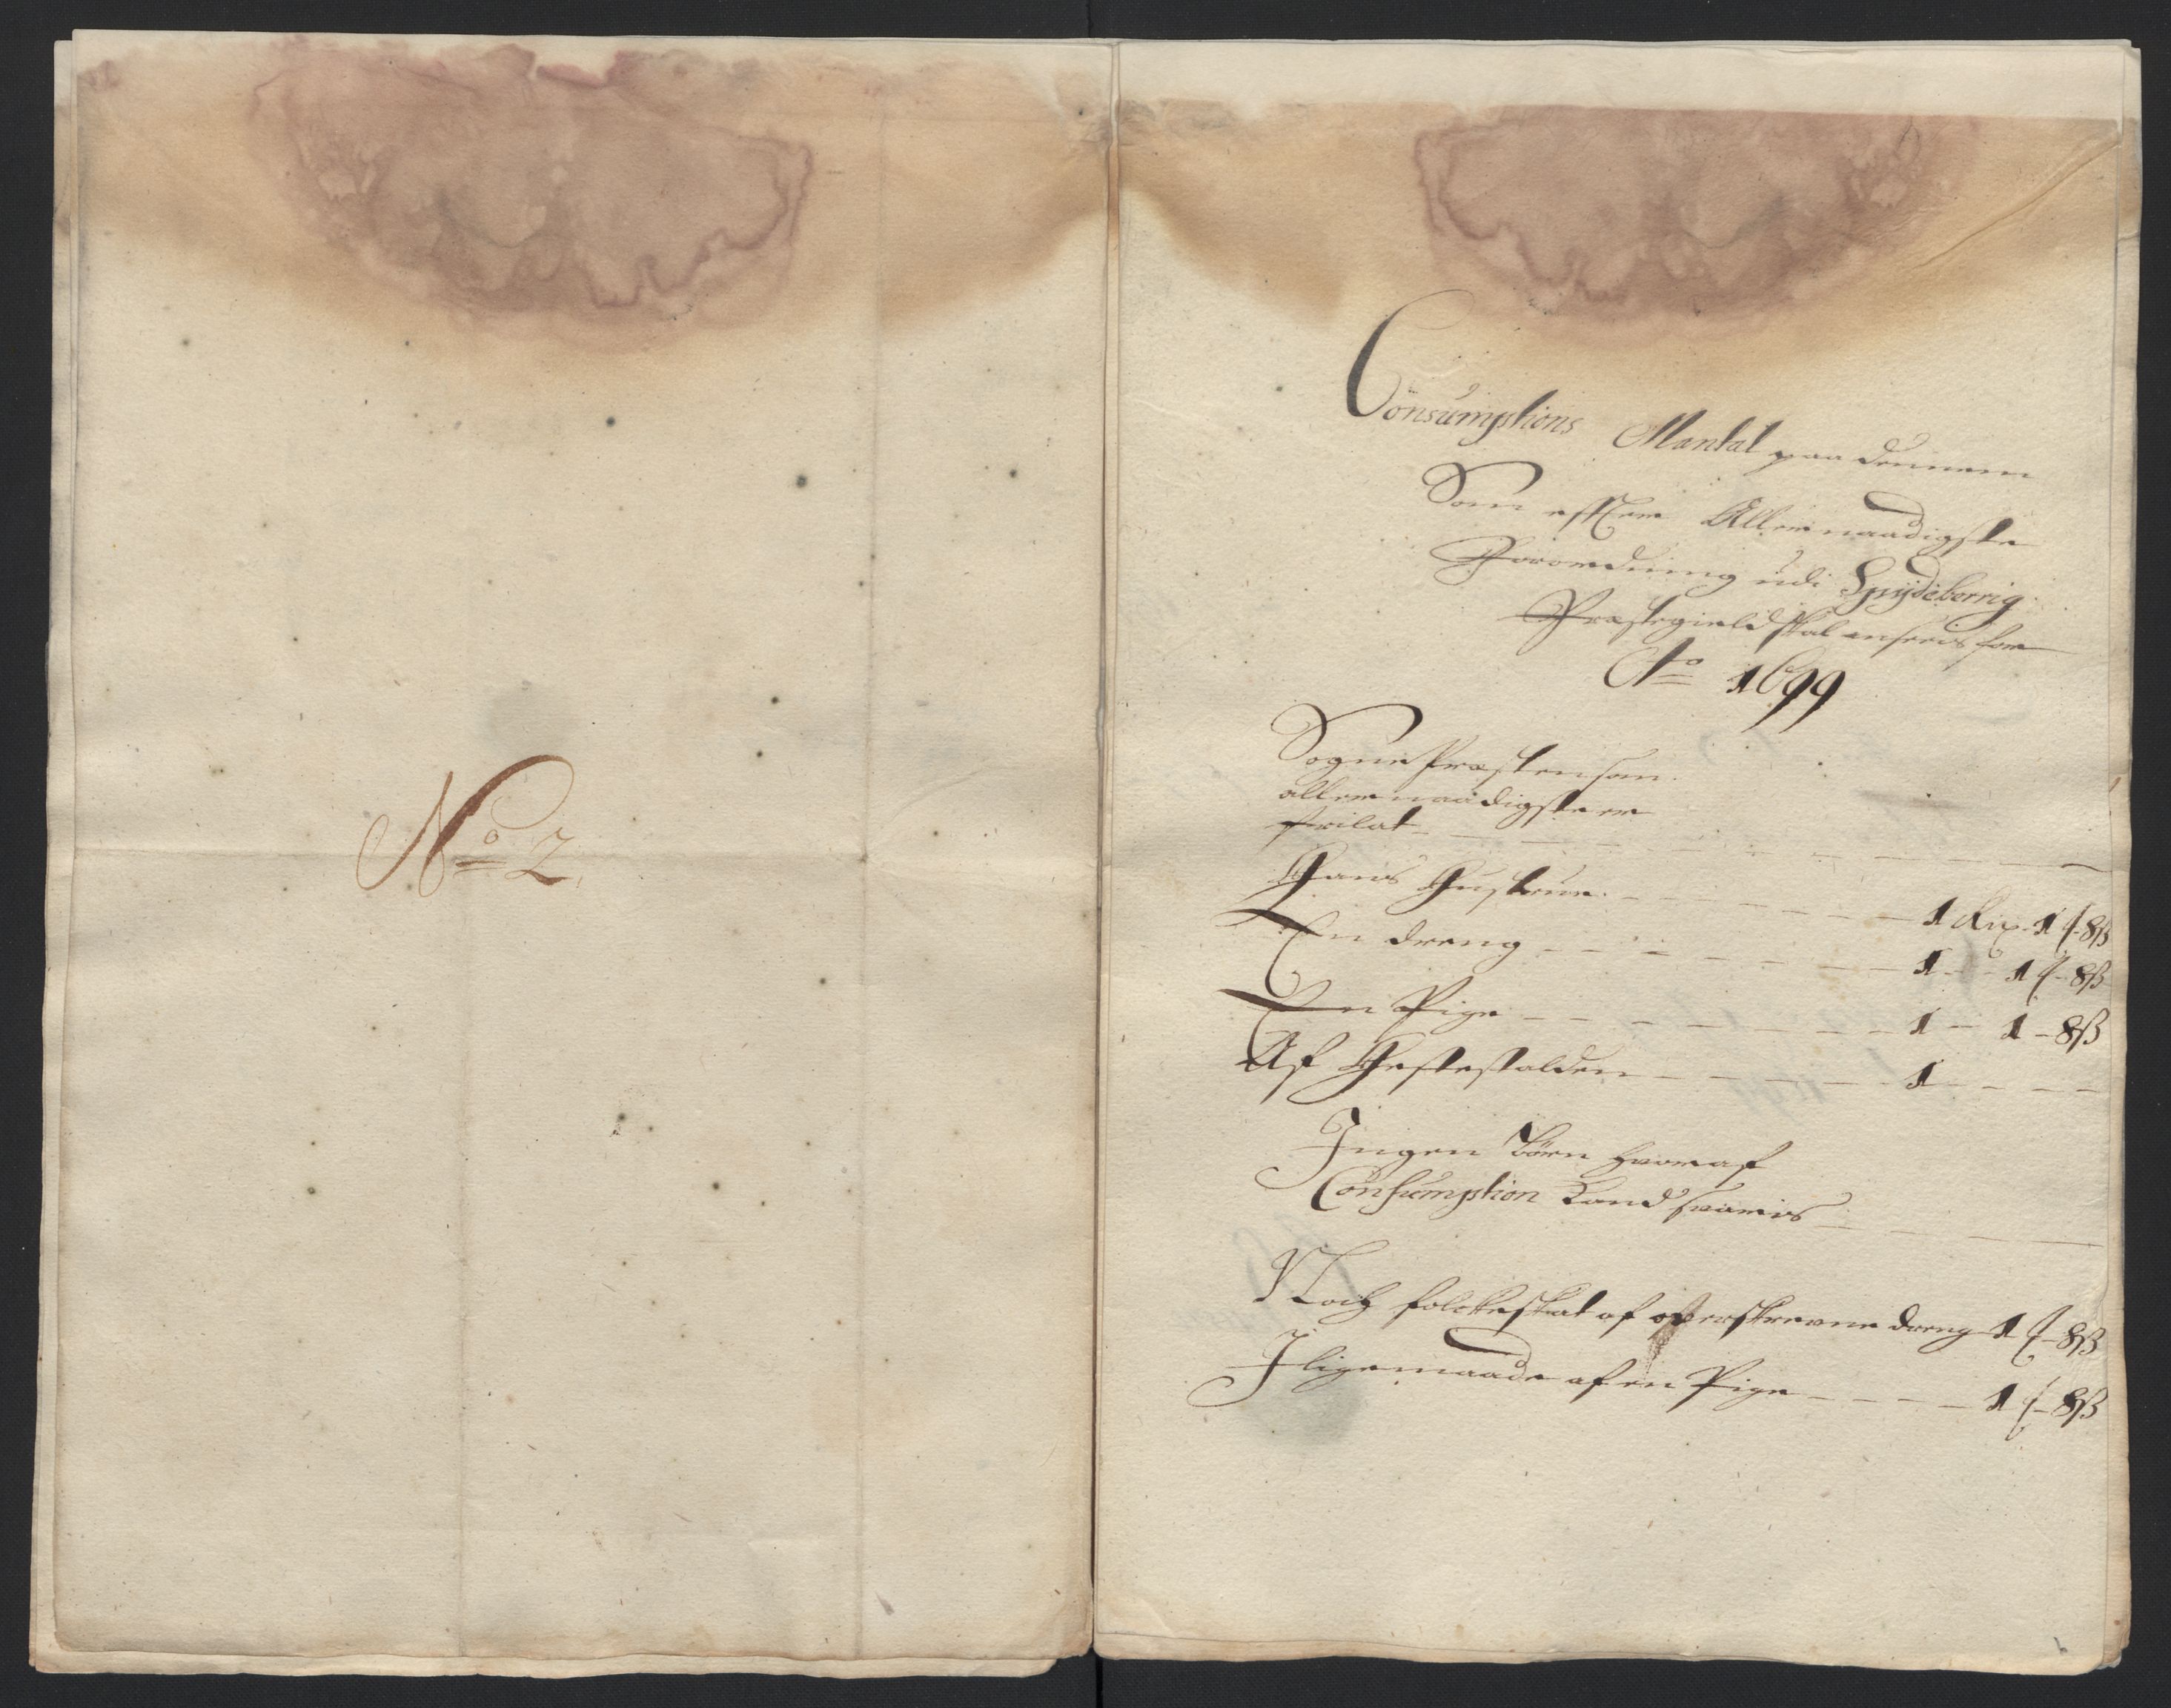 No 2
Consumptions Mantal paa dennem
Som effter Allernaadigste
Forordning udi Spydeberrig
Præstegield skal ansees for
Ao 1699
Sogne Præsten som
allernaadigst er
frilat
Hans Hustrue 1 Rix 1 ſ 8 ß
En dreng 1 1 ſ 8 ß
En Pige 1 1 8 ß
Af Hestestalden 1
Ingen Børn hvoraf
Consumption kand svaris
Noch folcheskat af ofverskrevne dreng 1 ſ 8 ß
I ligemaade af en Pige 1 ſ 8 ß